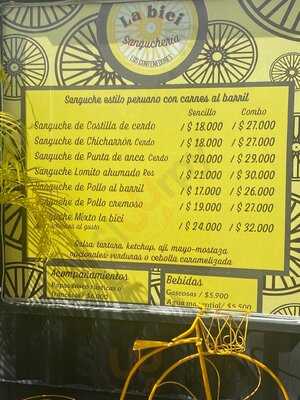 La bici
Sangucheria
LOS CONTENEDORES
Sanguche estilo peruano con carnes al barril
Sencillo Combo
Sanguche de Costilla de cerdo / $ 18.000 / $ 27.000
Sanguche de Chicharrón Cerdo / $ 18.000 / $ 27.000
Sanguche de Punta de anca Cerdo / $ 20.000 / $ 29.000
Sanguche Lomito ahumado Res / $ 21.000 / $ 30.000
Sanguche de Pollo al barril / $ 17.000 / $ 26.000
Sanguche de Pollo cremoso / $ 19.000 / $ 27.000
Sanguche Mixto la bici / $ 24.000 / $ 32.000
al gusto
Salsa tartara, ketchup, aji mayo-mostaza
opcionales: verduras o cebolla caramelizada
Acompañamientos
Papas rusticas o
francesas / $6.000
Bebidas
Gaseosas / $5.900
Agua / $5.500